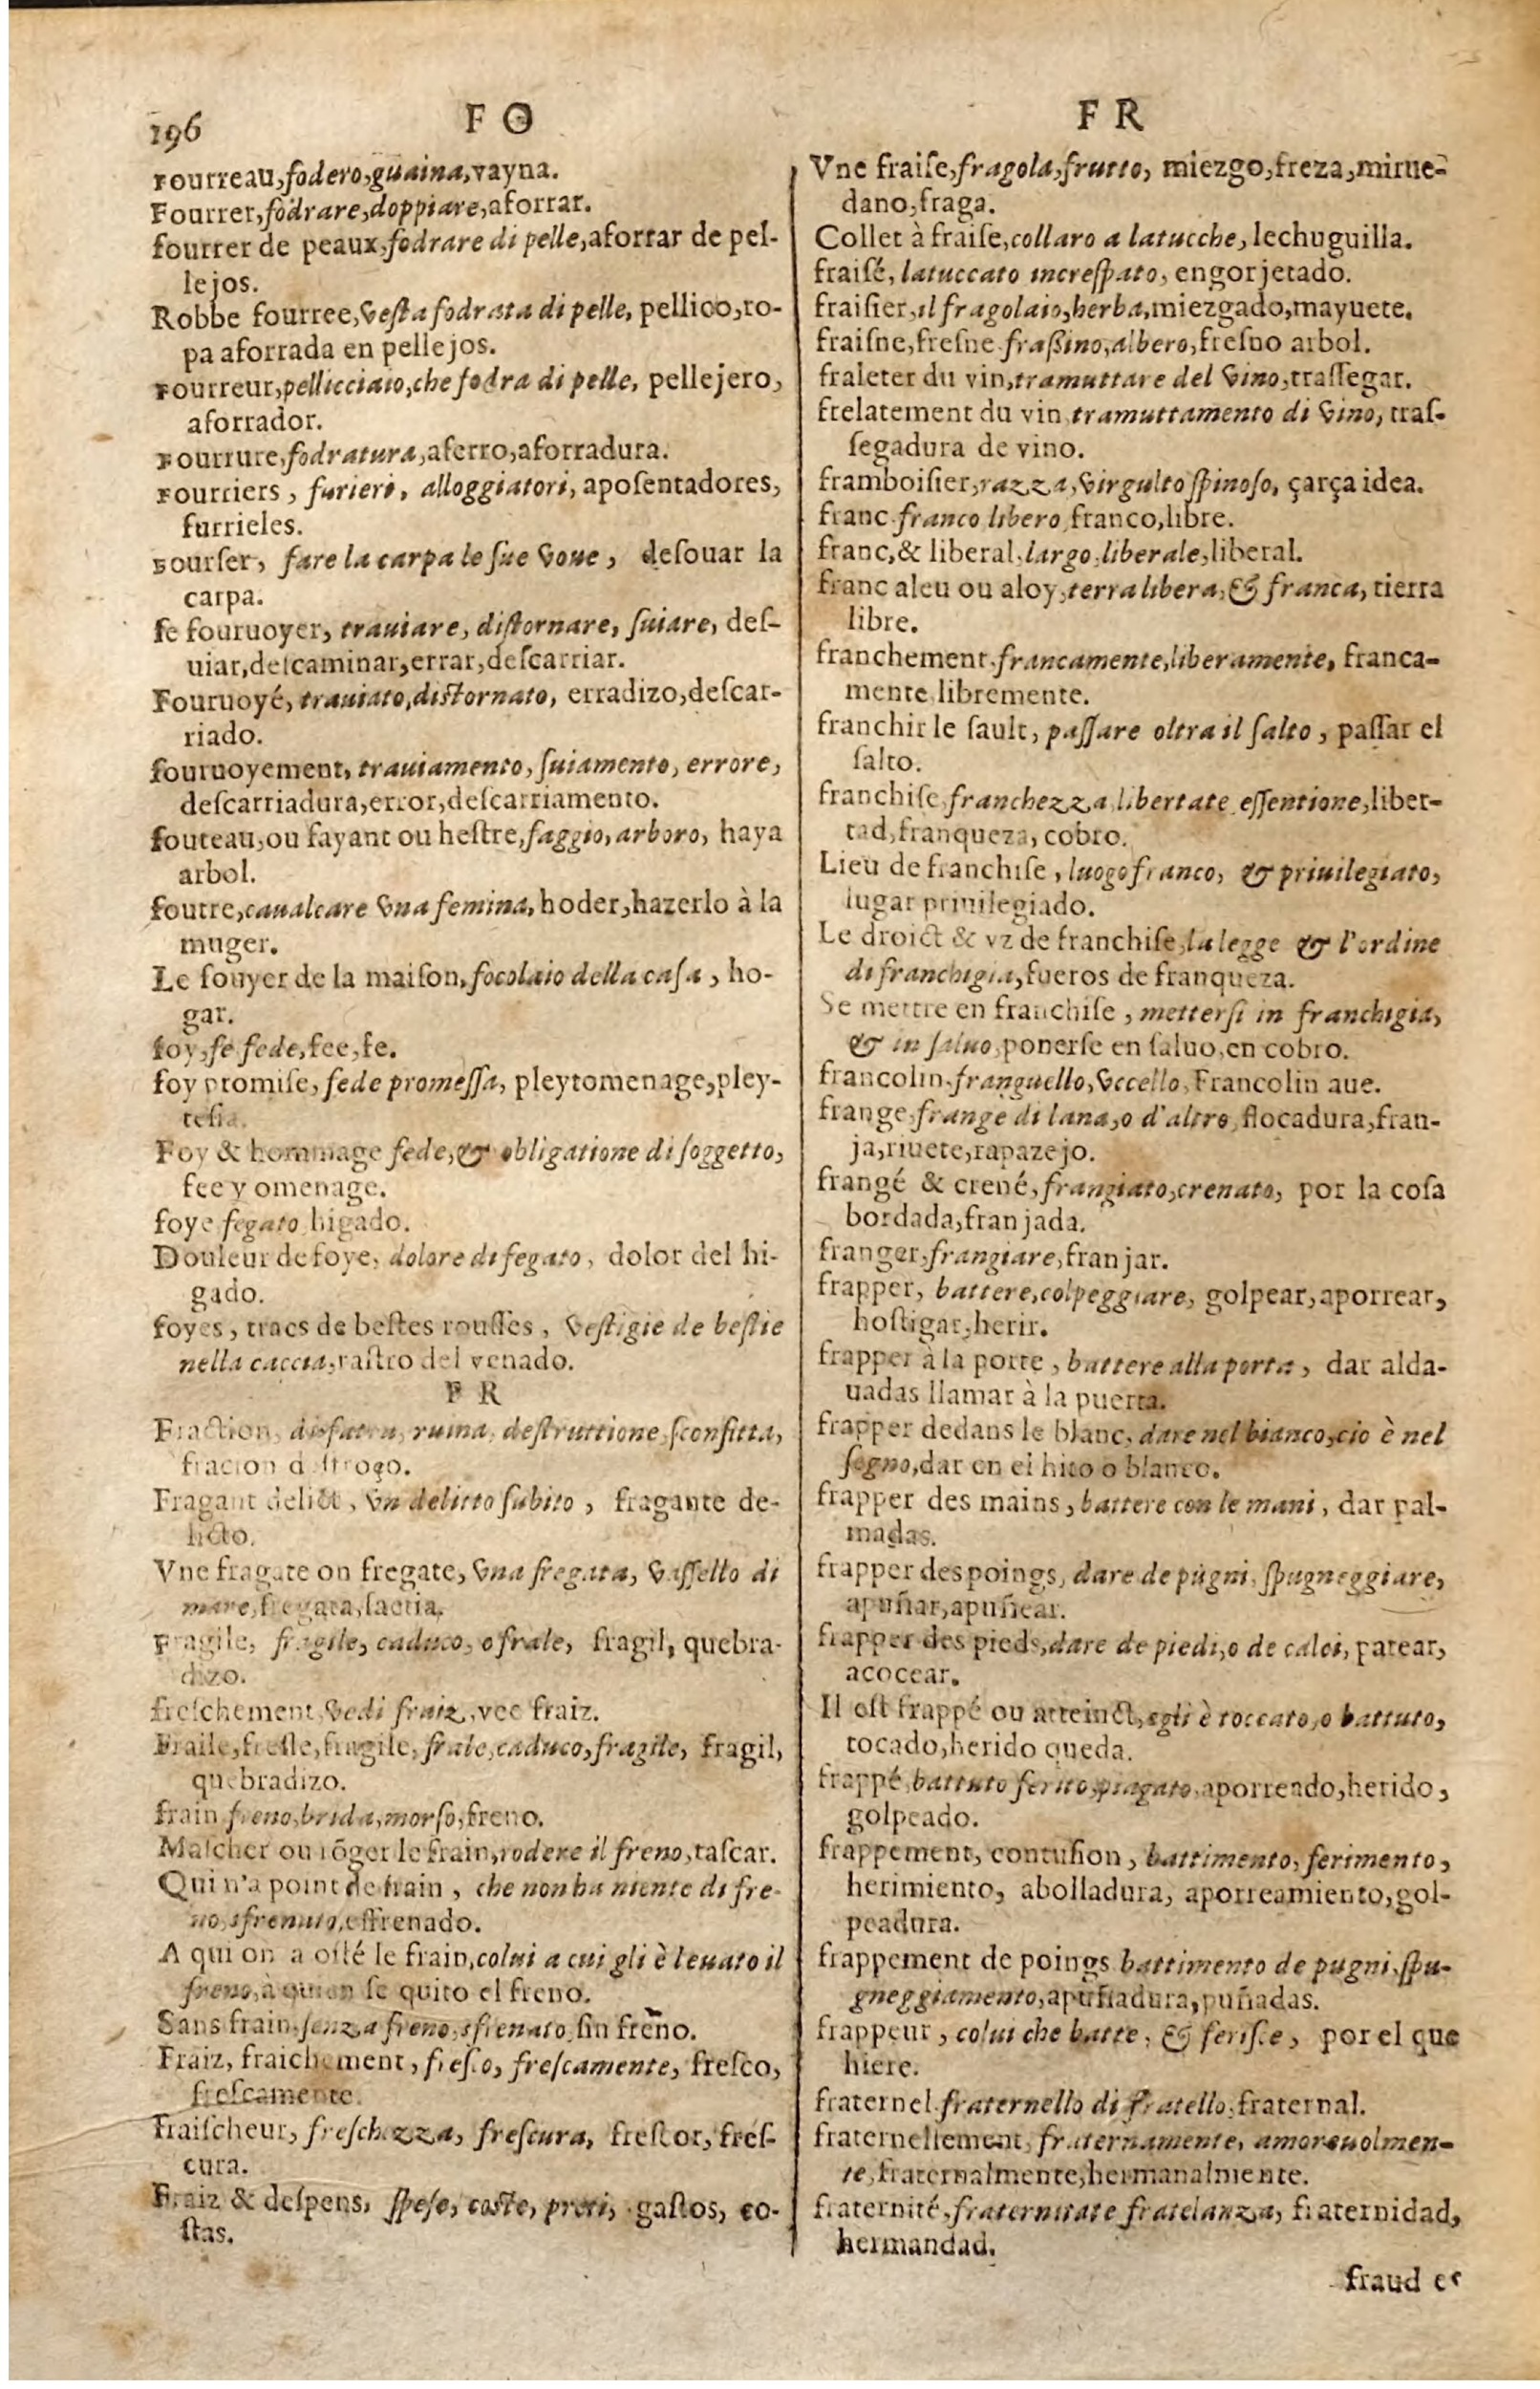 196
F O
Fourreau, fodero, guaina, vayna.
Fourrer, fodrare, doppiare, aforrar.
fourrer de peaux, fodrare di pelle, aforrar de pel-
lejos.
Robbe fourree, vesta fodrata di pelle, pellico, ro-
pa aforrada en pellejos.
Fourreur, pellicciaio, che fodra di pelle, pellejero,
aforrador.
Fourrure, fodratura, aferro, aforradura.
Fourriers, furieri, alloggiatori, aposentadores,
furrieles.
Fourser, fare la carpa le sue voue, desouar la
carpa.
se fouruoyer, trauiare, distornare, suiare, des-
uiar, descaminar, errar, descarriar.
Fouruoyé, trauiato, distornato, erradizo, descar-
riado.
fouruoyement, trauiamento, suiamento, errore,
descarriadura, error, descarriamento.
fouteau, ou fayant ou hestre, faggio, arboro, haya
arbol.
foutre, caualcare vna femina, hoder, hazerlo à la
muger.
Le fouyer de la maison, focolaio della casa, ho-
gar.
foy, fe fede, fee, fe.
foy promise, fede promessa, pleytomenage, pley-
tesia.
Foy & hommage fede, & obligatione di soggetto,
fee y omenage.
foye fegato higado.
Douleur de foye, dolore di fegato, dolor del hi-
gado.
foyes, tracs de bestes rousses, vestigie de bestie
nella caccia, rastro del venado.
F R
Fraction, disfatta, ruina, destruttione, sconfitta,
fracion destroço.
Fragant delict, vn delitto subito, fragante de-
licto.
Vne fragate on fregate, vna fregata, vassello di
mare, fregata, saetia.
Fragile, fragile, caduco, o frale, fragil, quebra-
dizo.
freschement, vedi fraiz, vee fraiz.
Fraile, fresle, fragile, frale, caduco, fragile, fragil,
quebradizo.
frain freno, brida, morso, freno.
Mascher ou rõger le frain, rodere il freno, tascar.
Qui n'a point de frain, che non ha niente di fre-
no, sfrenato, effrenado.
A qui on a osté le frain, colui a cui gli è leuato il
freno, à quien se quito el freno.
Sans frain, senza freno, sfrenato, sin freno.
Fraiz, fraichement, fresco, frescamente, fresco,
frescamente.
fraischeur, freschezza, frescura, frescor, fres-
cura.
Fraiz & despens, spese, coste, preti, gastos, co-
stas.
F R
Vne fraise, fragola, frutto, miezgo, freza, mirue-
dano, fraga.
Collet à fraise, collaro a latucche, lechuguilla.
fraisé, latuccato increspato, engorjetado.
fraisier, il fragolaio, herba, miezgado, mayuete.
fraisne, fresne frassino, albero, fresno arbol.
fraleter du vin, tramuttare del vino, trassegar.
frelatement du vin tramuttamento di vino, tras-
segadura de vino.
framboisier, razza, virgulto spinoso, çarça idea.
franc franco libero franco, libre.
franc, & liberal, largo, liberale, liberal.
franc aleu ou aloy, terra libera, & franca, tierra
libre.
franchement francamente, liberamente, franca-
mente libremente.
franchir le sault, passare oltra il salto, passar el
salto.
franchise franchezza libertate essentione, liber-
tad, franqueza, cobro.
Lieu de franchise, luogo franco, & priuilegiato,
lugar priuilegiado.
Le droict & vz de franchise, la legge & l'ordine
di franchigia, fueros de franqueza.
Se mettre en franchise, mettersi in franchigia,
& in saluo, ponerse en saluo, en cobro.
francolin, franguello, vccello, Francolin aue.
frange, frange di lana, o d'altro, flocadura, fran-
ja, riuete, rapazejo.
frangé & crené, frangiato, crenato, por la cosa
bordada, franjada.
franger, frangiare, franjar.
frapper, battere, colpeggiare, golpear, aporrear,
hostigar, herir.
frapper à la porte, battere alla porta, dar alda-
uadas llamar à la puerta.
frapper dedans le blanc, dare nel bianco, cio è nel
segno, dar en el hito o blanco.
frapper des mains, battere con le mani, dar pal-
madas.
frapper des poings, dare de pugni, spugneggiare,
apuñar, apuñear.
frapper des pieds, dare de piedi, o de calci, patear,
acocear.
Il est frappé ou atteinct, egli è toccato, o battuto,
tocado, herido queda.
frappé, battuto ferito, piagato, aporreado, herido,
golpeado.
frappement, contusion, battimento, ferimento,
herimiento, abolladura, aporreamiento, gol-
peadura.
frappement de poings battimento de pugni, spu-
gneggiamento, apuñadura, puñadas.
frappeur, colui che batte, & ferisce, por el que
hiere.
fraternel fraternello di fratello, fraternal.
fraternellement, fraternamente, amoreuolmen-
te, fraternalmente, hermanalmente.
fraternité, fraternitate fratelanza, fraternidad,
hermandad.
fraud es